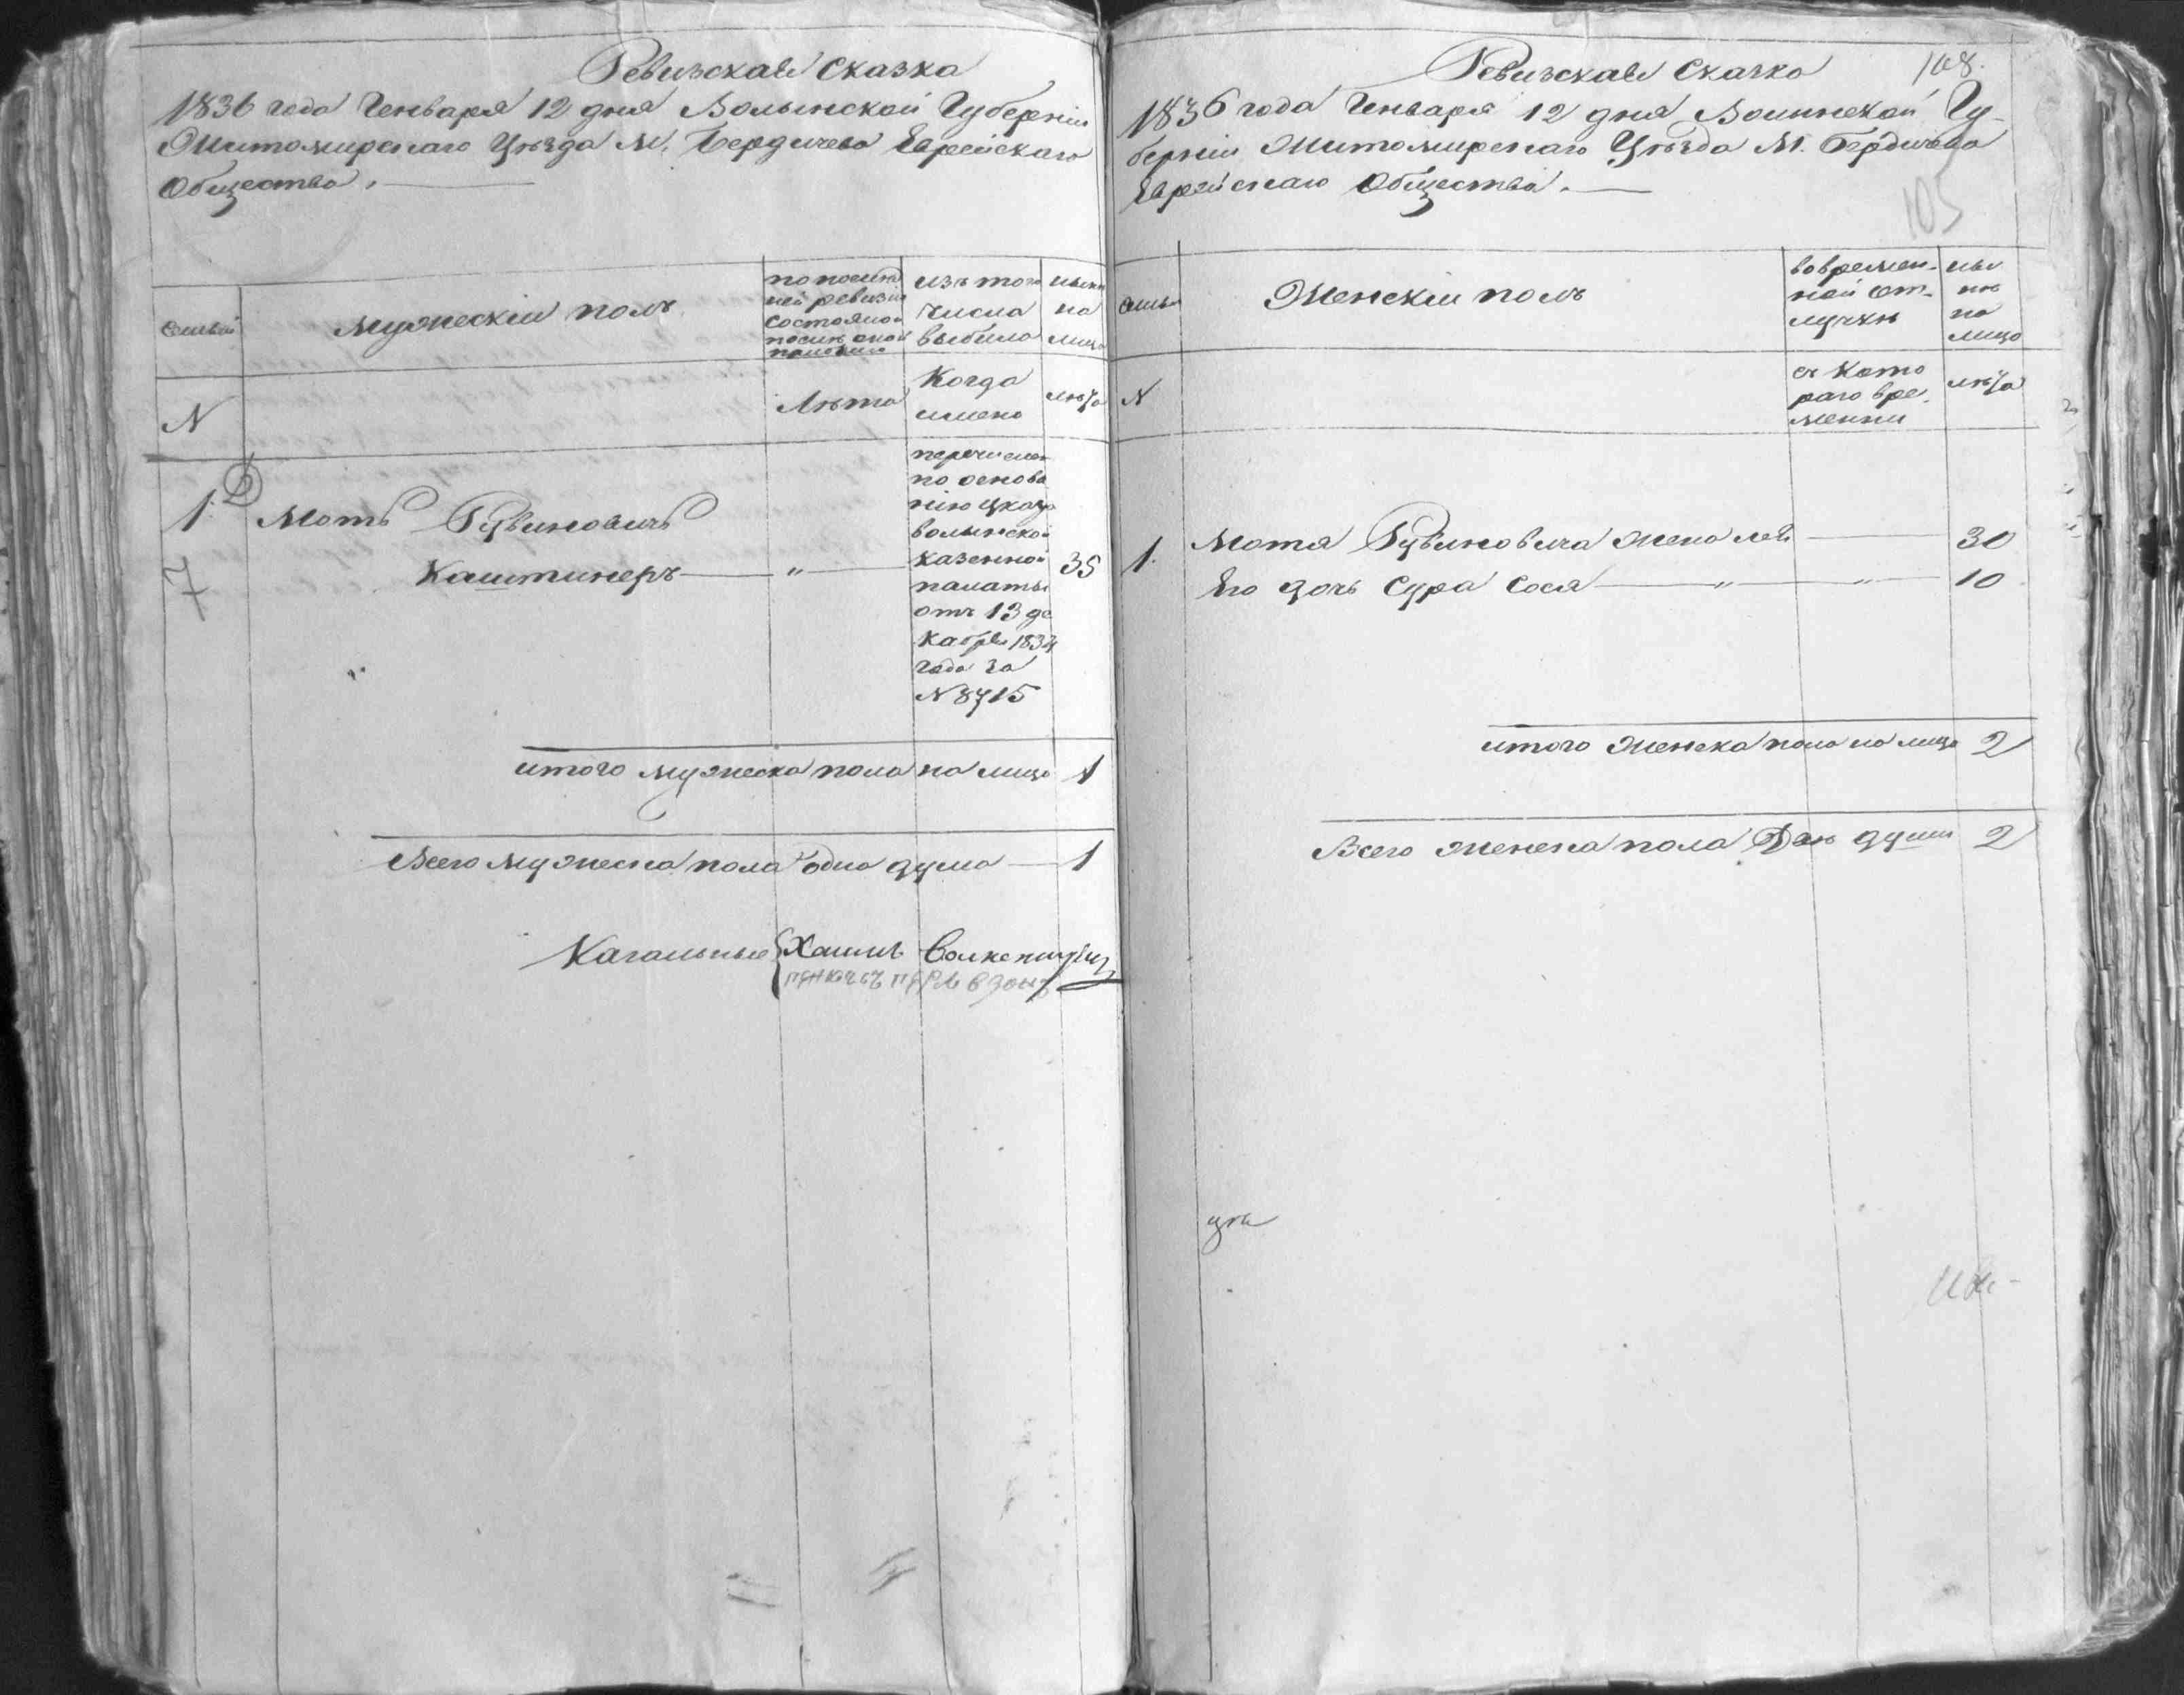 Ревизская Сказка
1836 года Генваря 12 дня Волынской Губернии
Житомирскаго Уезда М. Бердичева Еврейскаго
Общества.
Мужескій полъ
по послед
ней ревизіи
состояло и
после оной
изъ того
числа
выбыло
ныне
на
лицо
N
Лѣта
Когда
имено
лѣта
1. Мотъ Рувиновичъ
Каштинеръ — " — 35
7
перечислен
по основа
нію указа
волынской
казенной
палаты
отъ 13 де
кабря 1834
года за
N 8715
итого мужеска пола на лицо 1
Всего мужеска пола одна душа — 1
Кагальные Хаимъ
Ревизская Сказка
108.
1836 года Генваря 12 дня Волынской Гу-
берніи Житомирскаго Уѣзда М. Бердичева
Еврейскаго Общества.
105
Женскій полъ
во времен-
ной от-
лучкѣ
ны
нѣ
на
лицо
N
съ кото
раго вре
менни
лѣта
1. Мотя Рувиновича жена Лея — 30
Его дочь Сура Сося — " — " — 10
итого женска пола на лицо 2
Всего женска пола Двѣ души 2